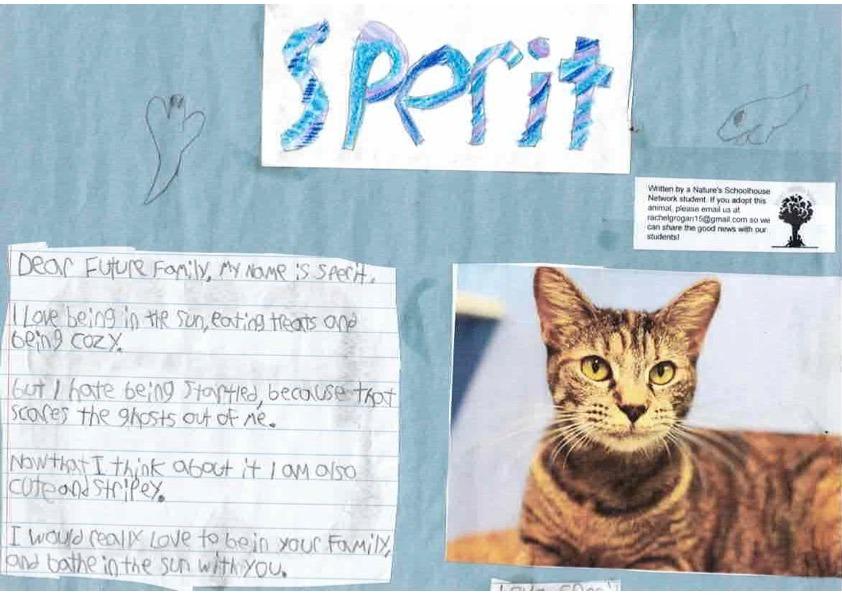 Sperit
Written by a Nature's Schoolhouse
Network student. If you adopt this
animal, please email us at
rachelgrogan15@gmail.com so we
can share the good news with our
students!
Dear Future Family, My name is Sperit.
I Love being in the sun, eating treats and
being cozy.
but I hate being startled, because that
scares the ghosts out of me.
Now that I think about it I am also
cute and stripey.
I would really Love to be in your Family,
and bathe in the sun with you.